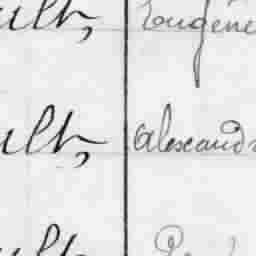 ult, Eugène
ult, Alexand
ult,